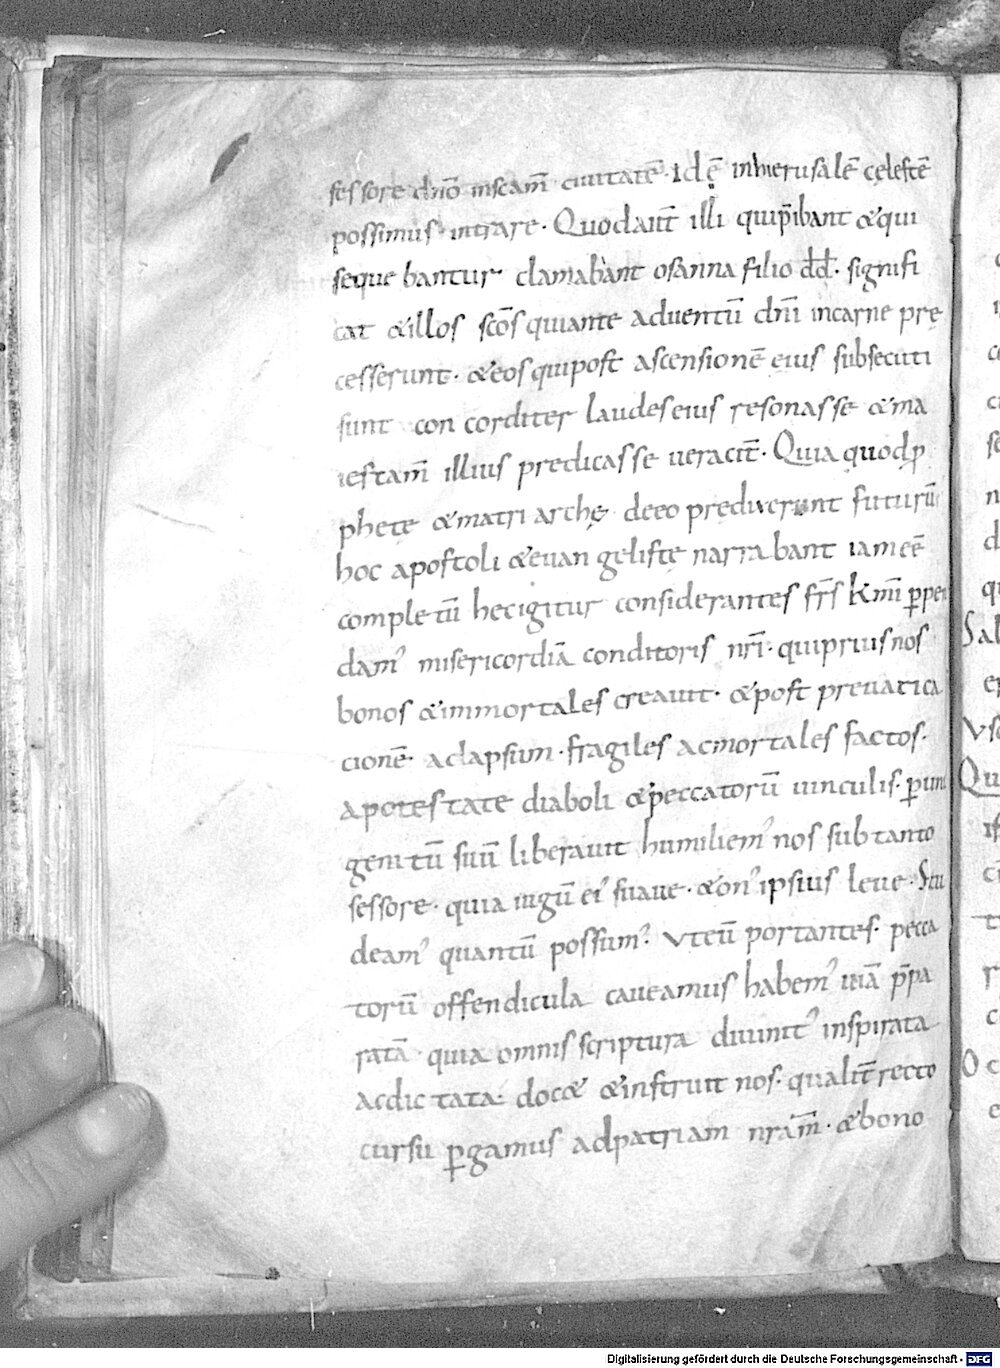 sessore dn̄o inscam̄ ciuitatē· Id ē inhierusalē cęlestē
possimus intrare· Quod aut̄ illi qui p̄ibant & qui
sequebantur· clamabant osanna filio dd̄· signifi
cat & illos sc̄os qui ante aduentū dn̄i in carne pre
cesserunt· & eos qui post ascensionē eius subsecuti
sunt concorditer laudes eius resonasse & ma
iestam̄ illius predicasse ueracit̄· Quia quod ꝓ
phetę & matriarchę de eo predixerunt futurū
hoc apostoli & euangelistę narrabant iam eē
completū hec igitur considerantes fr̄s k̄mi ꝑpen
dam᾽ misericordiā conditoris nr̄i· qui prius nos
bonos & immortales creauit· & post preuarica
cionē adapsum· fragiles ac mortales factos·
a potestate diaboli & peccatorū uinculis· ꝑ uni
genitū suū liberauit humiliem᾽ nos sub tanto
sessore· quia iugū ei᾽ suaue· & on᾽ ipsius leue· Stu
deam᾽ quantū possum᾽· Vt eū portantes· pecca
torū offendicula caueamus habem᾽ uiā p̄pa
ratā· quia omnis scriptura diuinit᾽ inspirata
ac dictata· doc& & instruit nos· qualit̄ recto
cursu ꝑgamus ad patriam nrām̄· & bono
Sal
Vs
Qu
Digitalisierung gefördert durch die Deutsche Forschungsgemeinschaft - DFG